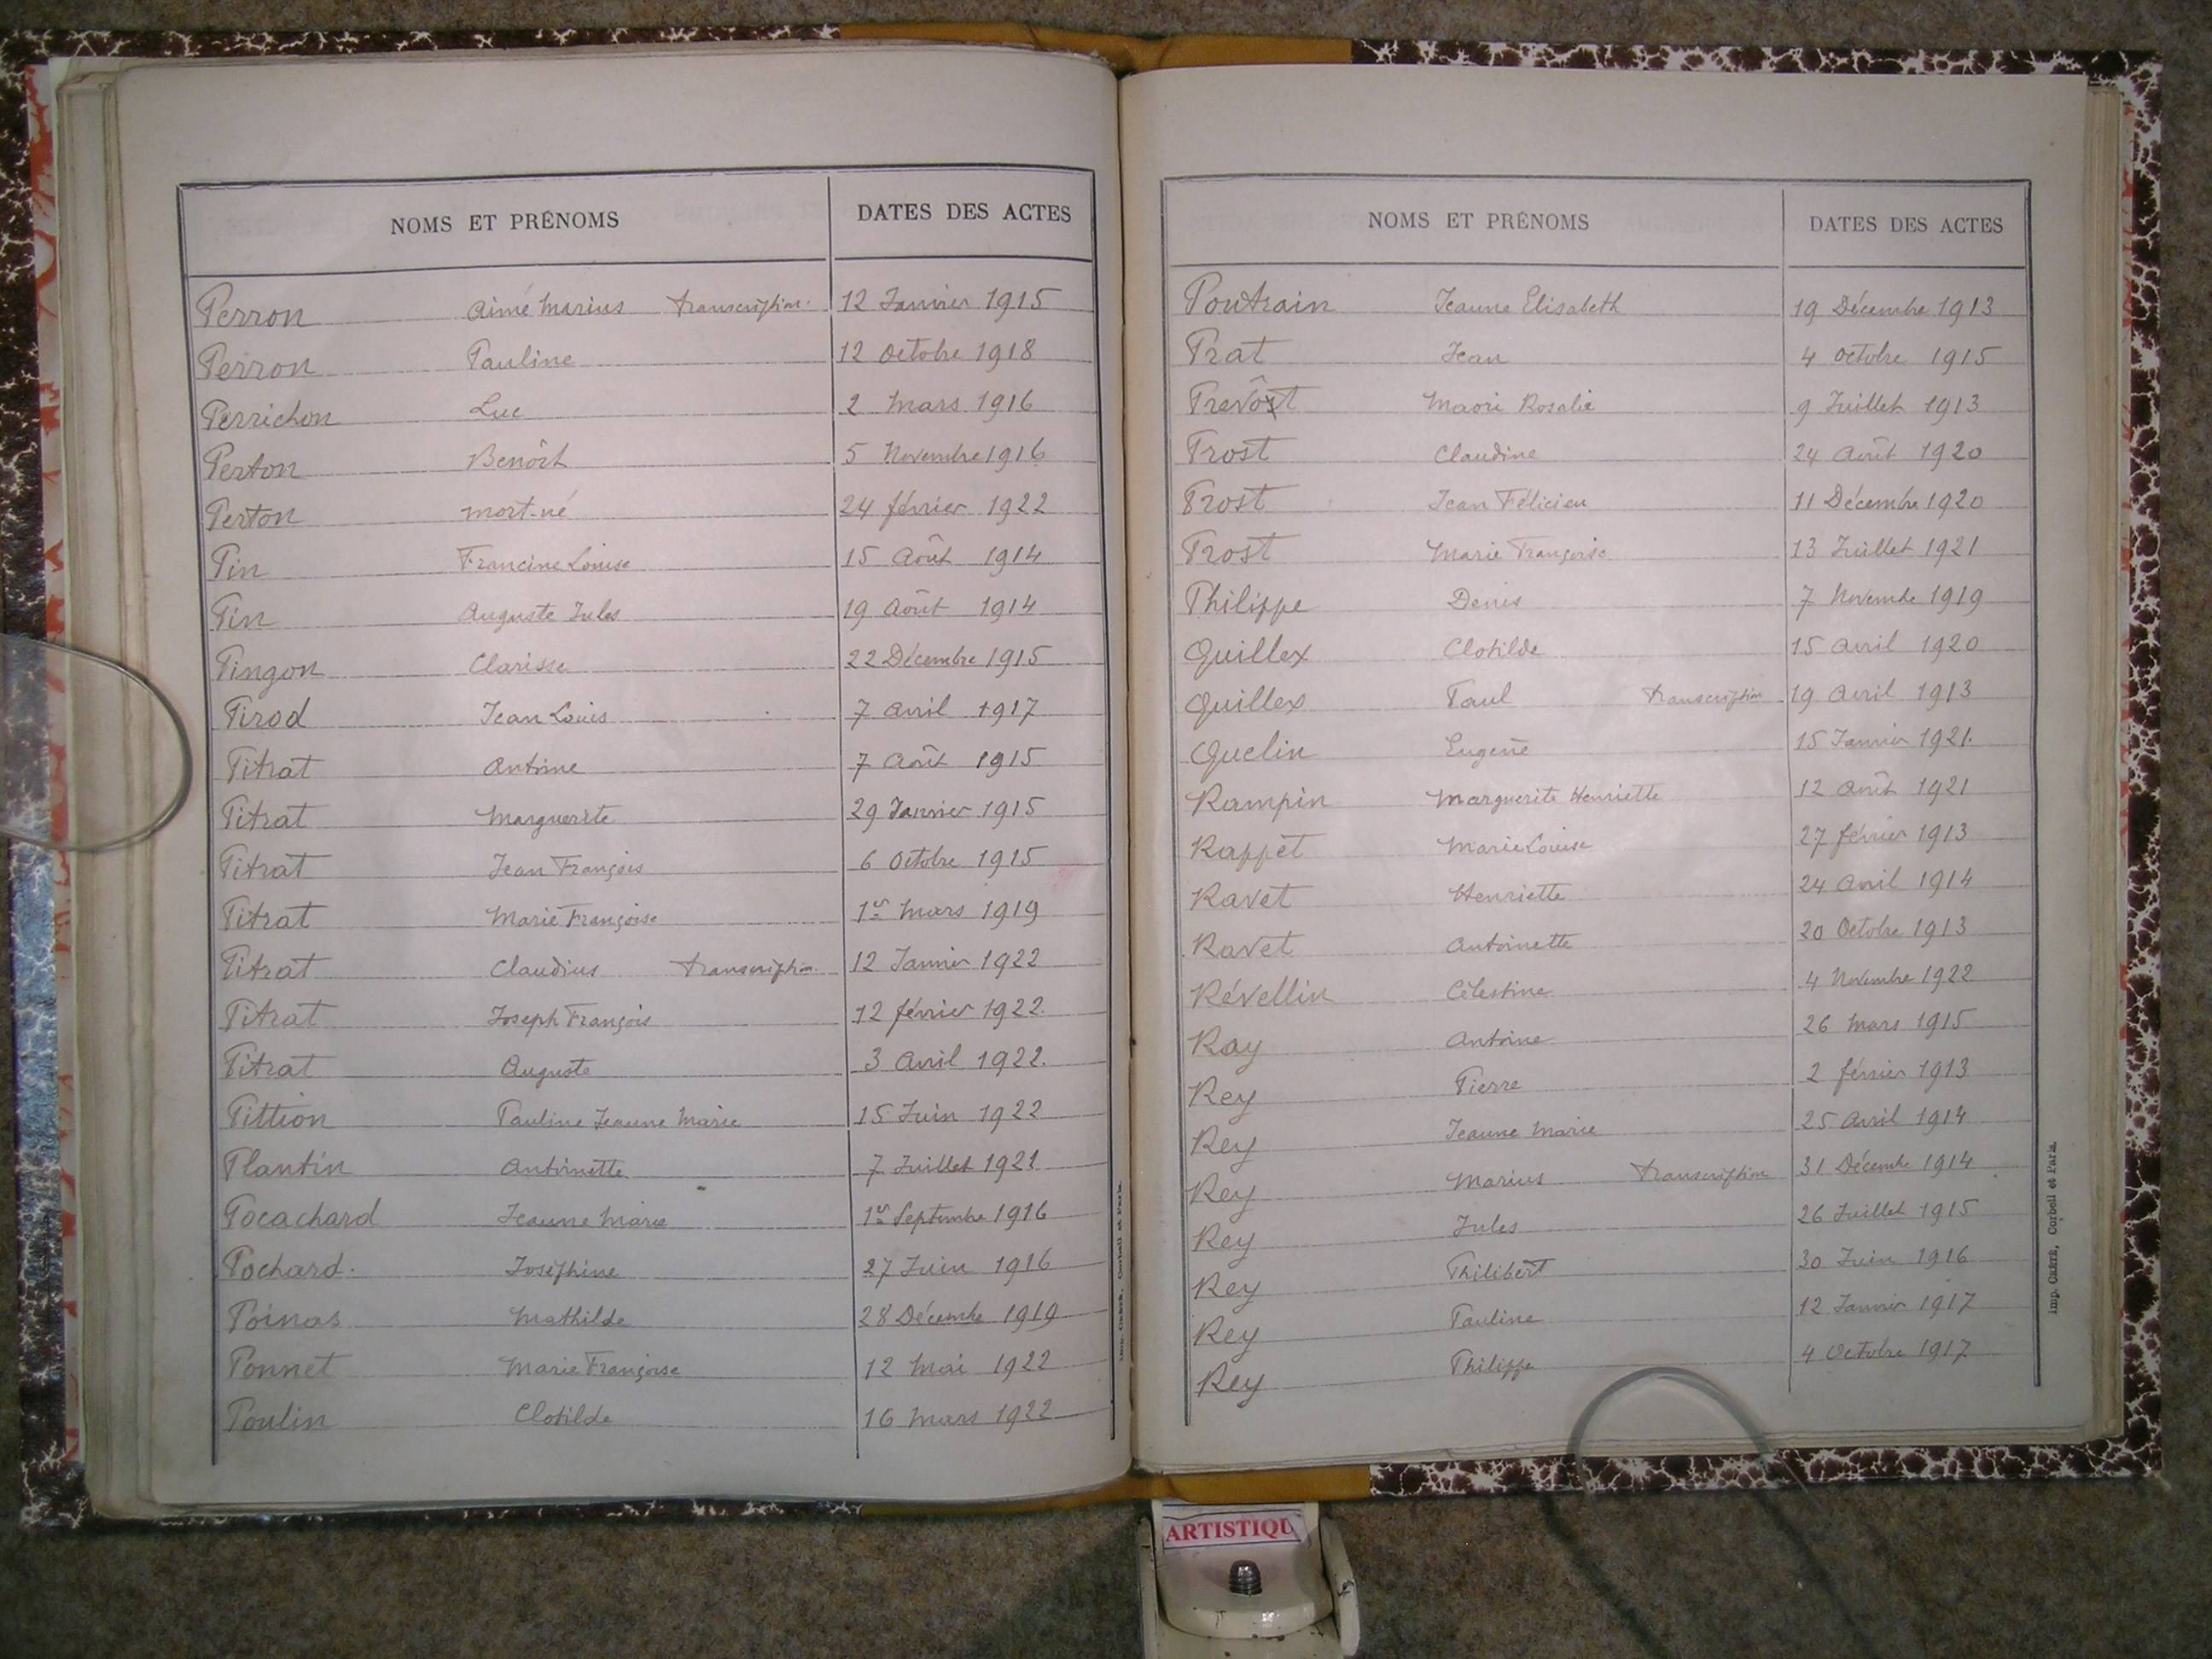 NOMS ET PRÉNOMS DATES DES ACTES
Perron Aimé Marius transcription. 12 Janvier 1915
Perron Pauline 12 Octobre 1918
Perrichon Luc 2 Mars 1916
Perton Benoît 5 Novembre 1916
Perton mort-né 24 février 1922
Pin Francine Louise 15 Août 1914
Pin Auguste Jules 19 Août 1914
Pingon Clarisse 22 Décembre 1915
Pirod Jean Louis 7 Avril 1917
Pitrat Antoine 7 Août 1915
Pitrat Marguerite 29 Janvier 1915
Pitrat Jean François 6 Octobre 1915
Pitrat Marie Françoise 1er Mars 1919
Pitrat Claudius transcription 12 Janvier 1922
Pitrat Joseph François 12 février 1922.
Pitrat Auguste 3 Avril 1922.
Pittion Pauline Jeanne Marie 15 Juin 1922
Plantin Antoinette 7 Juillet 1921
Pocachard Jeanne Marie 1er Septembre 1916
Pochard. Joséphine 27 Juin 1916
Poinas Mathilde 28 Décembre 1919
Ponnet Marie Françoise 12 Mai 1922
Poulin Clotilde 16 Mars 1922
Imp. CRÉTÉ, Corbeil et Paris.
NOMS ET PRÉNOMS DATES DES ACTES
Poutrain Jeanne Elisabeth 19 Décembre 1913
Prat Jean 4 Octobre 1915
Prevôst Marie Rosalie 9 Juillet 1913
Prost Claudine 24 Août 1920
Prost Jean Félicien 11 Décembre 1920
Prost Marie Françoise 13 Juillet 1921
Philippe Denis 7 Novembre 1919
Quillex Clotilde 15 Avril 1920
Quillex Paul transcription 19 Avril 1913
Quelin Eugène 15 Janvier 1921.
Rampin Marguerite Henriette 12 Août 1921
Rappet Marie Louise 27 février 1913
Ravet Henriette 24 Avril 1914
Ravet Antoinette 20 Octobre 1913
Révellin Célestine 4 Novembre 1922
Ray Antoine 26 Mars 1915
Rey Pierre 2 février 1913
Rey Jeanne Marie 25 Avril 1914
Rey Marius transcription 31 Décembre 1914
Rey Jules 26 Juillet 1915
Rey Philibert 30 Juin 1916
Rey Pauline 12 Janvier 1917
Rey Philippe 4 Octobre 1917
Imp. CRÉTÉ, Corbeil et Paris.
ARTISTIQU